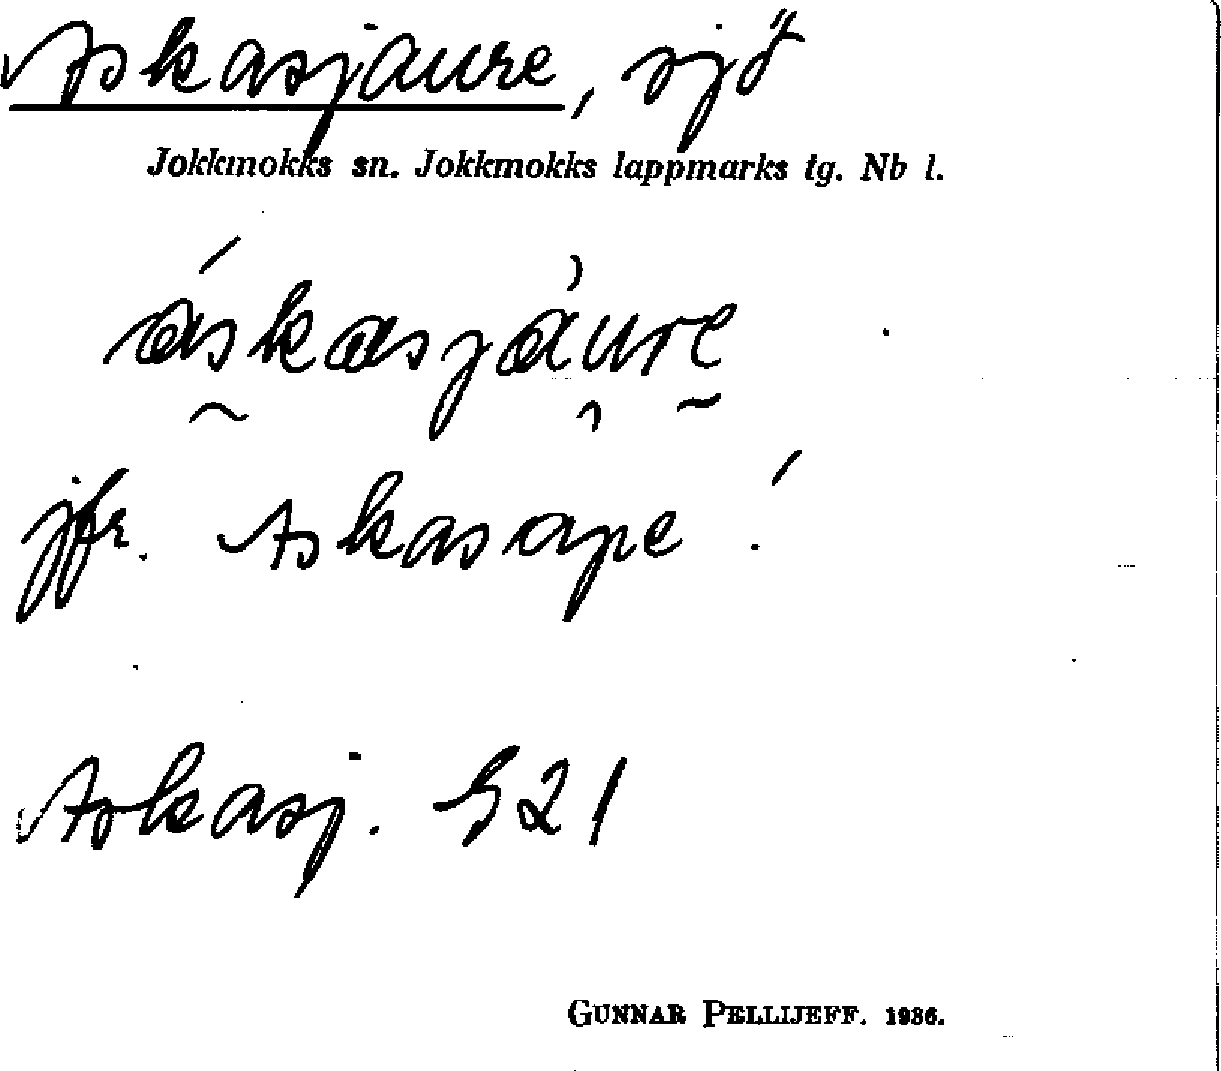 Askasjaure, sjö
Jokkmokks sn. Jokkmokks lappmarks tg. Nb l.
áskasjàure
jfr. Askasape !
Askasj. S21
GUNNAR PELLIJEFF. 1936.